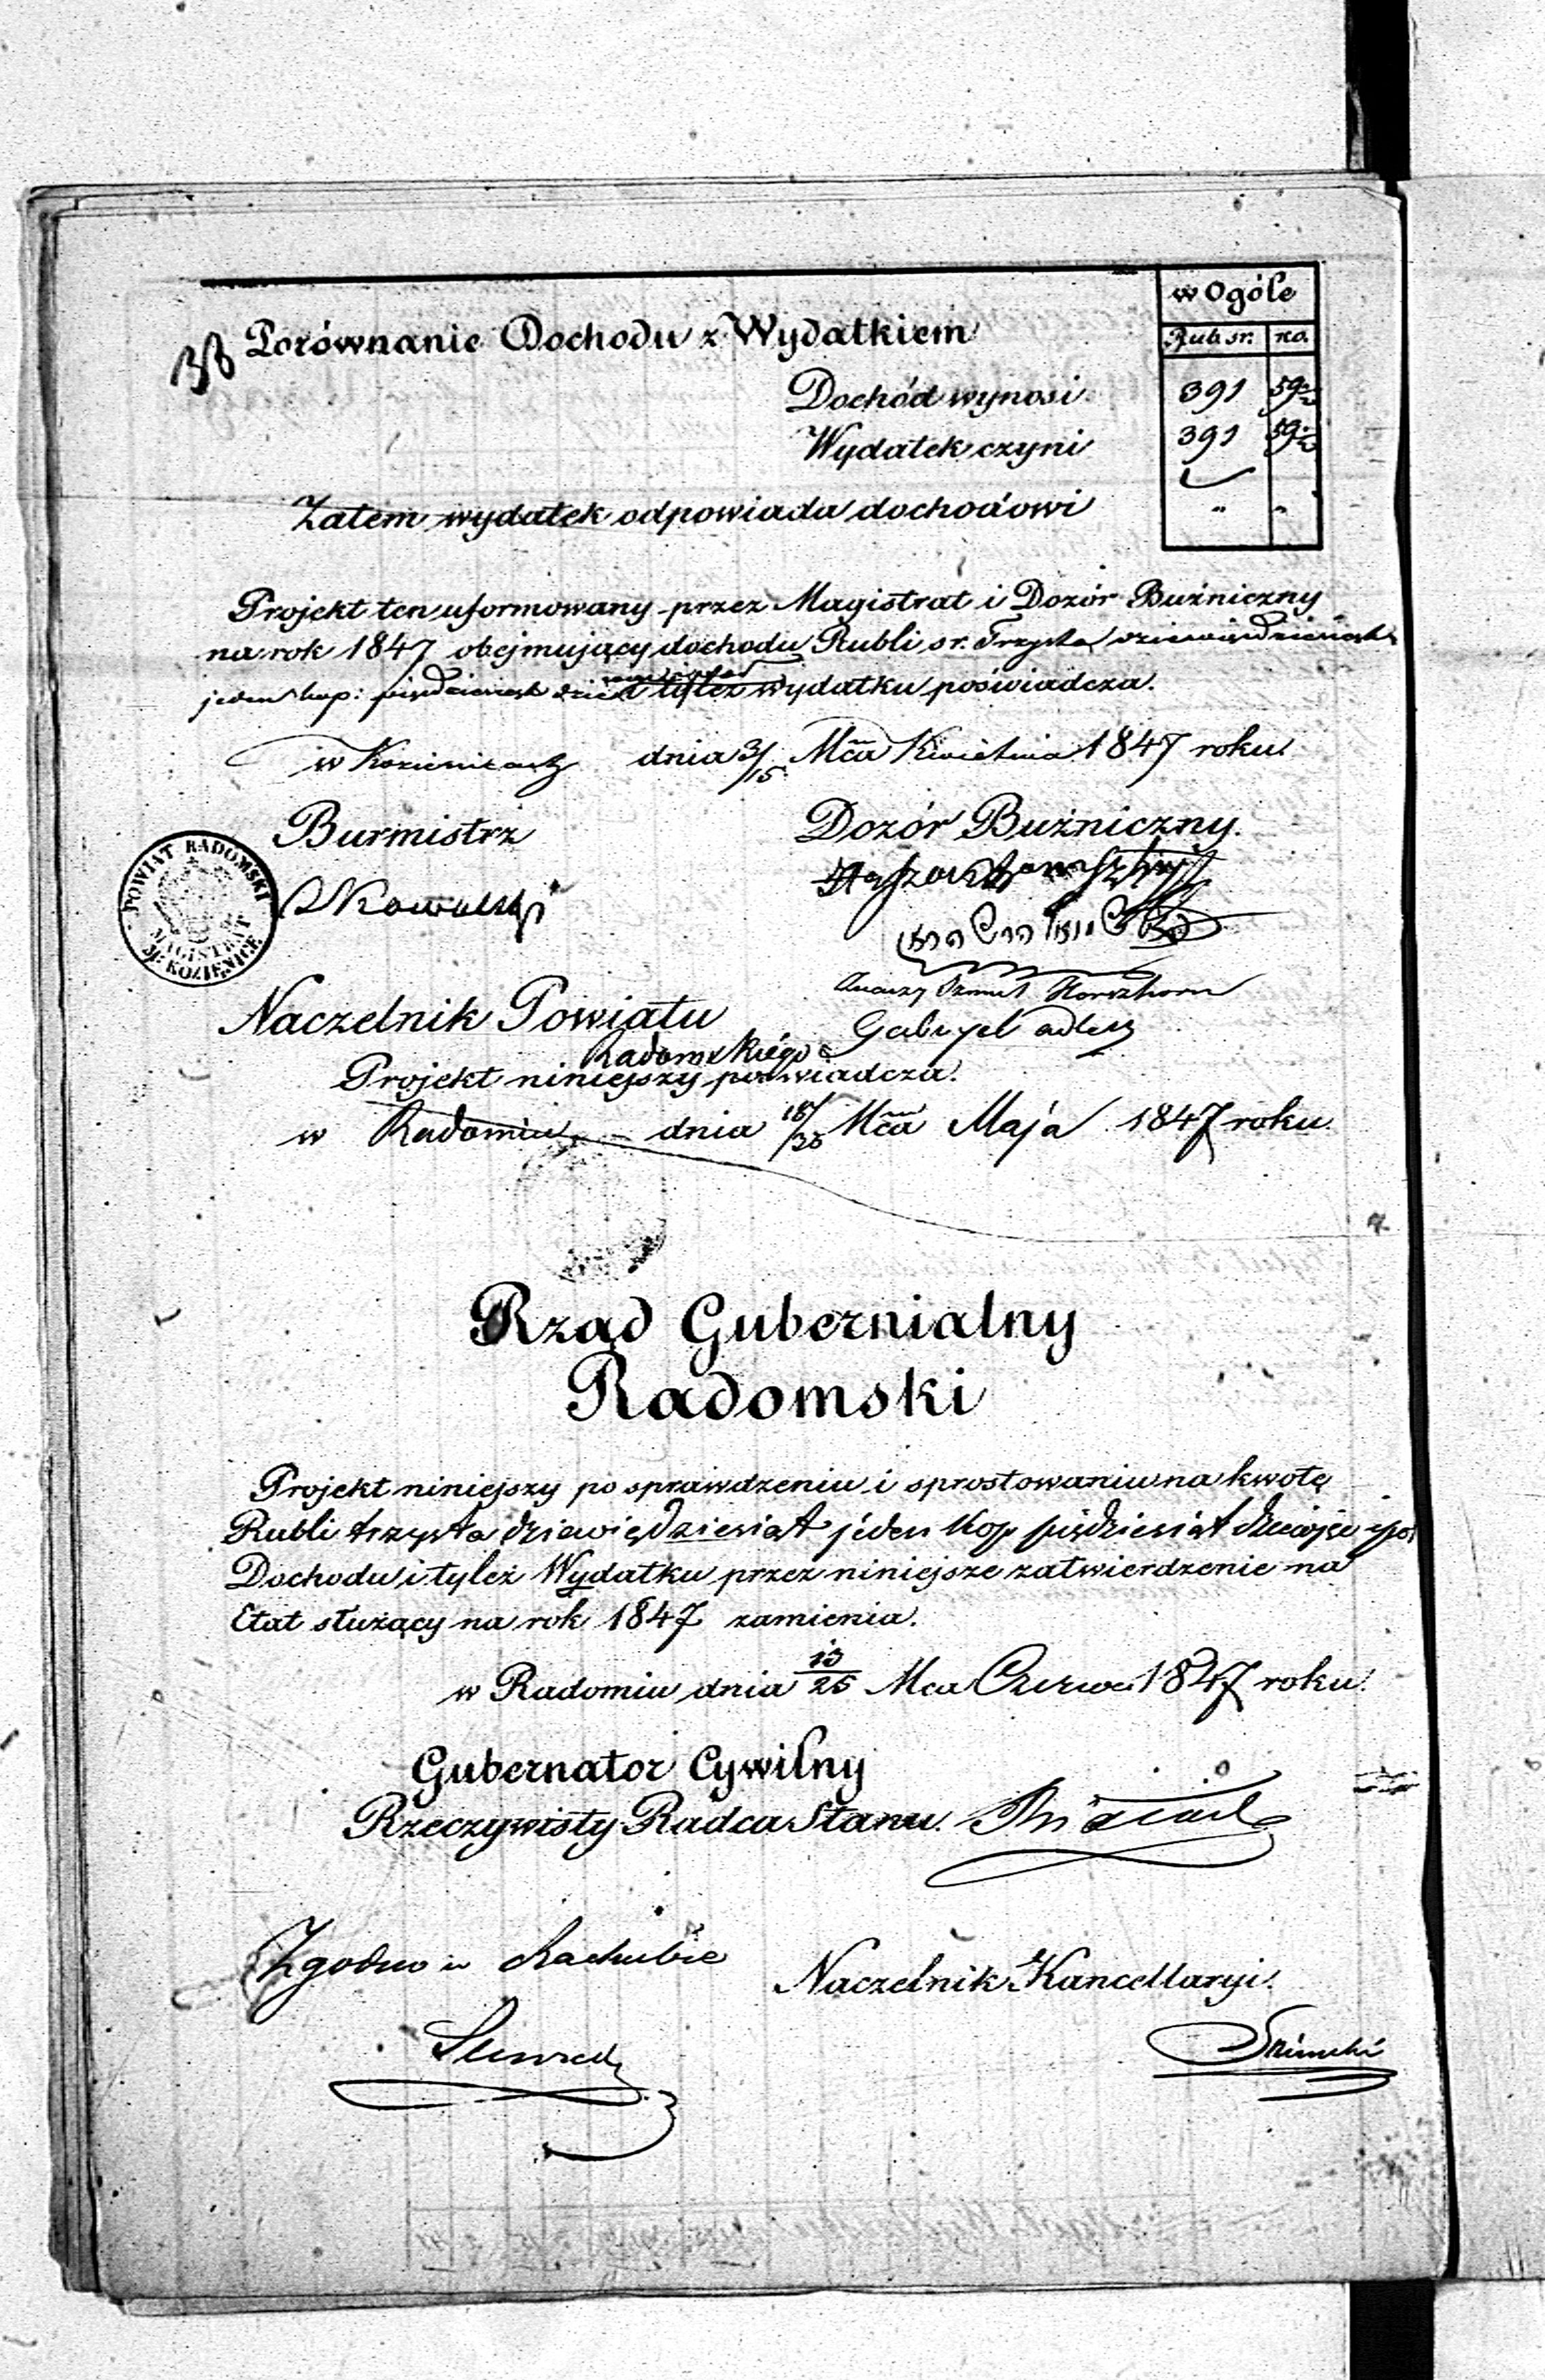 w Ogóle
38 Porównanie Dochodu z Wydatkiem
Rub. sr. ko.
Dochód wynosi 391 59½
Wydatek czyni 391 59½
Zatem wydatek odpowiada dochodowi " "
Projekt ten uformowany przez Magistrat i Dozór Buźniczny
na rok 1847 obejmujący dochodu Rubli sr. Trzysta dziewięćdziesiąt
jeden kop: pięćdziesiąt tyleż wydatku poświadcza.
w Kozienicach dnia 3/15 Mca Kwietnia 1847 roku.
Burmistrz Dozór Buźniczny.
POWIAT RADOMSKI
MAGISTRAT
M: KOZIENICE
Kowalski
Naczelnik Powiatu
Gabryel Adler
Radomskiego
Projekt niniejszy poświadcza.
w Radomiu dnia Mca Maja 1847 roku.
Rząd Gubernialny
Radomski
Projekt niniejszy po sprawdzeniu i sprostowaniu na kwotę
Rubli trzysta dziewięćdziesiąt jeden kop pięćdziesiąt dziewięć i pół
Dochodu i tyleż Wydatku przez niniejsze zatwierdzenie na
Etat służący na rok 1847 zamienia.
w Radomiu dnia 13/25 Mca Czerwca 1847 roku.
Gubernator Cywilny
Rzeczywisty Radca Stanu.
Zgodno w Rachubie
Naczelnik Kancellaryi.